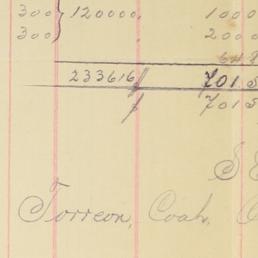 300 } 120000. 1000
300 2000
233616 7015
7015
S
Torreon, Coah,